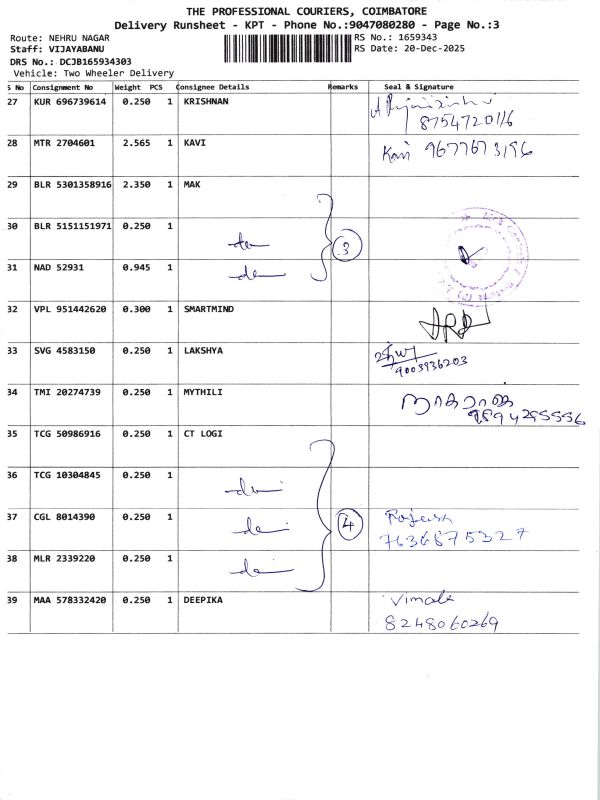 THE PROFESSIONAL COURIERS, COIMBATORE
Delivery Runsheet - KPT - Phone No.:9047080280 - Page No.:3
Route: NEHRU NAGAR
RS No.: 1659343
Staff: VIJAYABANU
RS Date: 20-Dec-2025
DRS No.: DCJB165934303
Vehicle: Two Wheeler Delivery
S No Consignment No Weight PCS Consignee Details Remarks Seal & Signature
27 KUR 696739614 0.250 1 KRISHNAN
8754720116
28 MTR 2704601 2.565 1 KAVI Kavi 9677673196
29 BLR 5301358916 2.350 1 MAK
30 BLR 5151151971 0.250 1
3
31 NAD 52931 0.945 1
32 VPL 951442620 0.300 1 SMARTMIND
33 SVG 4583150 0.250 1 LAKSHYA
9003936203
34 TMI 20274739 0.250 1 MYTHILI
35 TCG 50986916 0.250 1 CT LOGI
36 TCG 10304845 0.250 1
37 CGL 8014390 0.250 1 4 Rajesh
7636875327
38 MLR 2339220 0.250 1
39 MAA 578332420 0.250 1 DEEPIKA Vimala
8248060269